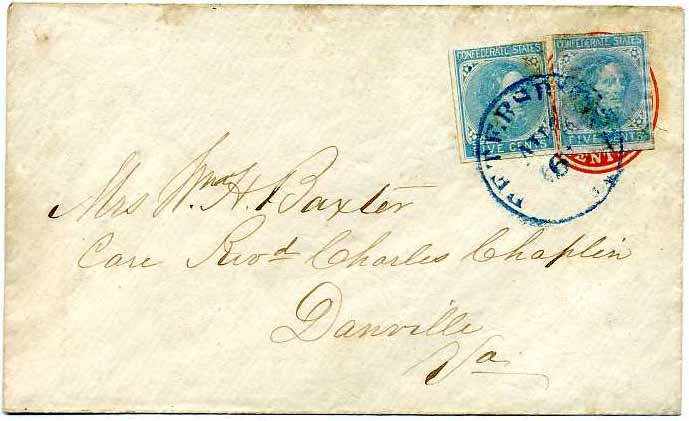 CONFEDERATE STATES CONFEDERATE STATES
FIVE CENTS FIVE CENTS
PETERSBURG
Mrs Wm. H. Baxter
Care Revd Charles Chaplin
Danville
Va